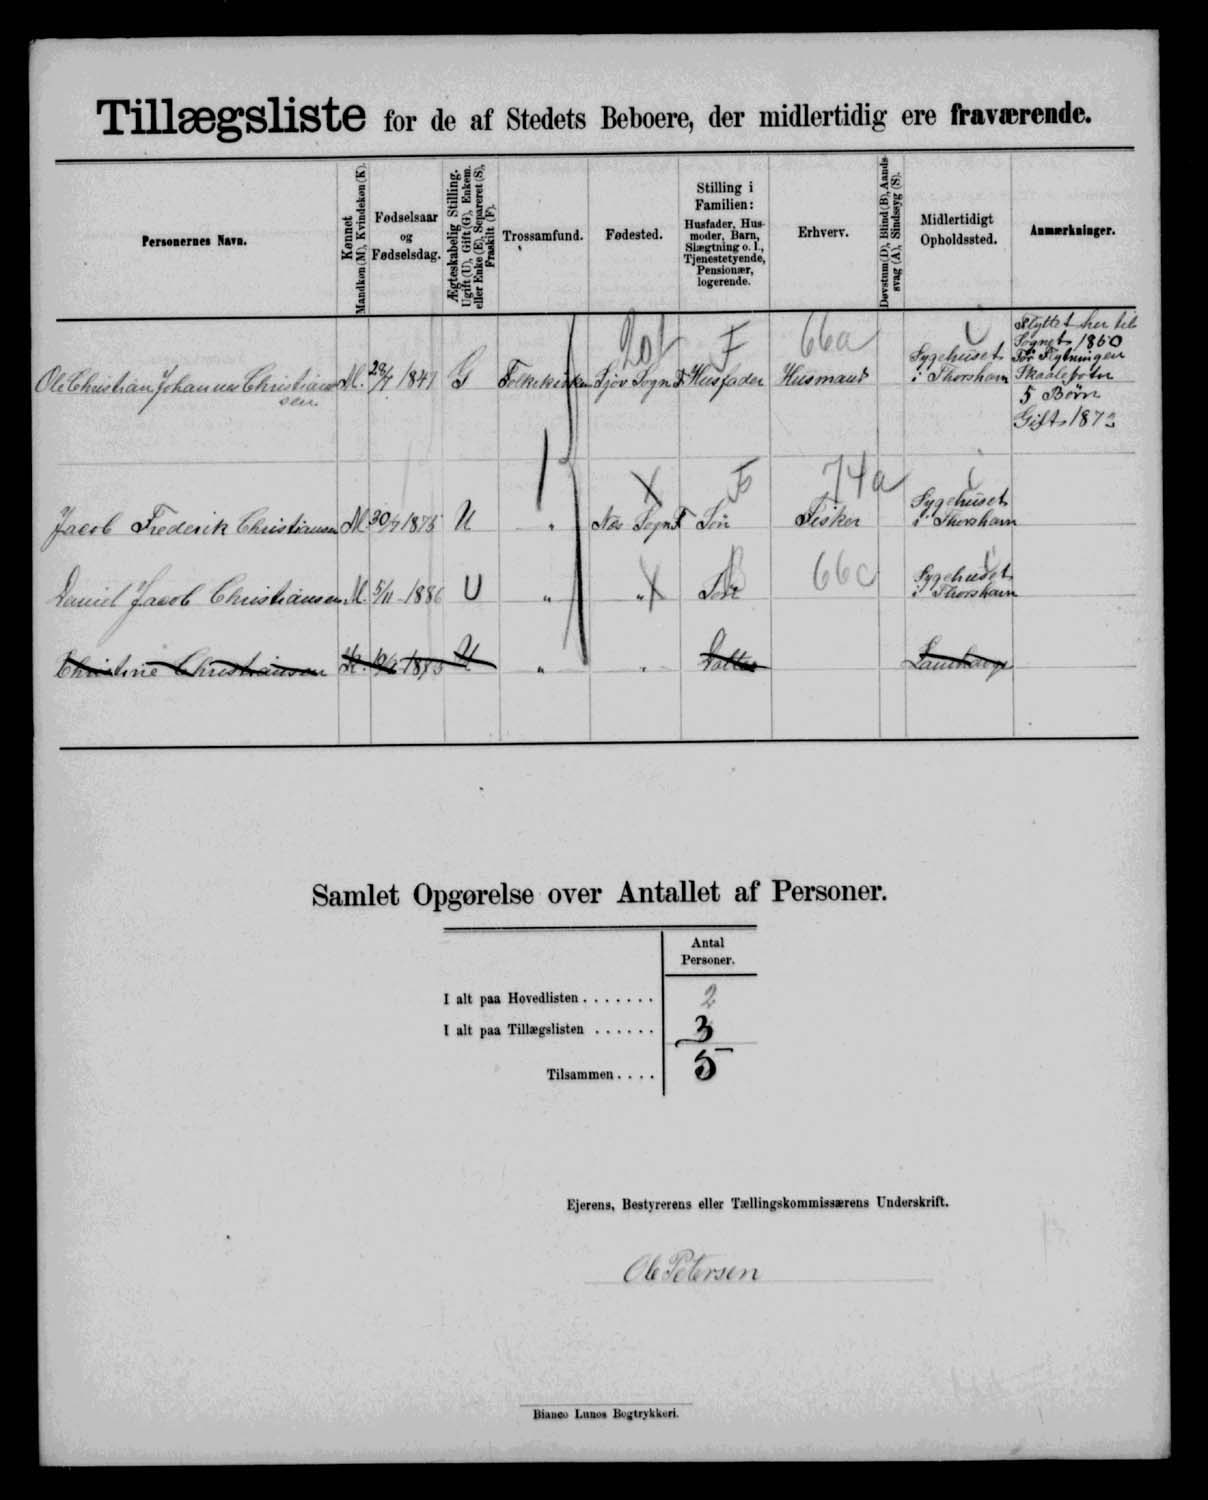 Tillægsliste for de af Stedets Beboere, der midlertidig ere fraværende.
Personernes Navn.
Kønnet
Mandkøn (M), Kvindekøn (K).
Fødselsaar
og
Fødselsdag.
Ægteskabelig Stilling.
Ugift (U), Gift (G), Enkem.
eller Enke (E), Separeret (S),
Fraskilt (F).
Trossamfund.
Fødested.
Stilling i
Familien:
Husfader, Hus-
moder, Barn,
Slægtning o. l.,
Tjenestetyende,
Pensionær,
logerende.
Erhverv.
Døvstum (D), Blind (B), Aands-
svag (A), Sindssyg (S).
Midlertidigt
Opholdssted.
Anmærkninger.
Ole Christian Johannes Christian
sen
M. 29/7 1847 G Folkekirken Sjov Sogn F Husfader Husmand
F
66a
Sygehuset
i Thorshavn
Flyttet her til
Sognet 1860
Før Flytningen
Skaalebotn
5 Børn
Gift 1872
Jacob Frederik Christiansen M 30/7 1875 U " Næs Sogn F Søn Fisker
X
F
74a
Sygehuset
i Thorshavn
Daniel Jacob Christiansen M. 5/11 1886 U " " Søn
X
B
66c
Sygehuset
i Thorshavn
Christine Christiansen K. U " " Datter
Samlet Opgørelse over Antallet af Personer.
Antal
Personer.
I alt paa Hovedlisten . . . . . . . 2
I alt paa Tillægslisten . . . . . . 3
Tilsammen . . . . 5
Ejerens, Bestyrerens eller Tællingskommissærens Underskrift.
Ole Petersen
Bianco Lunos Bogtrykkeri.